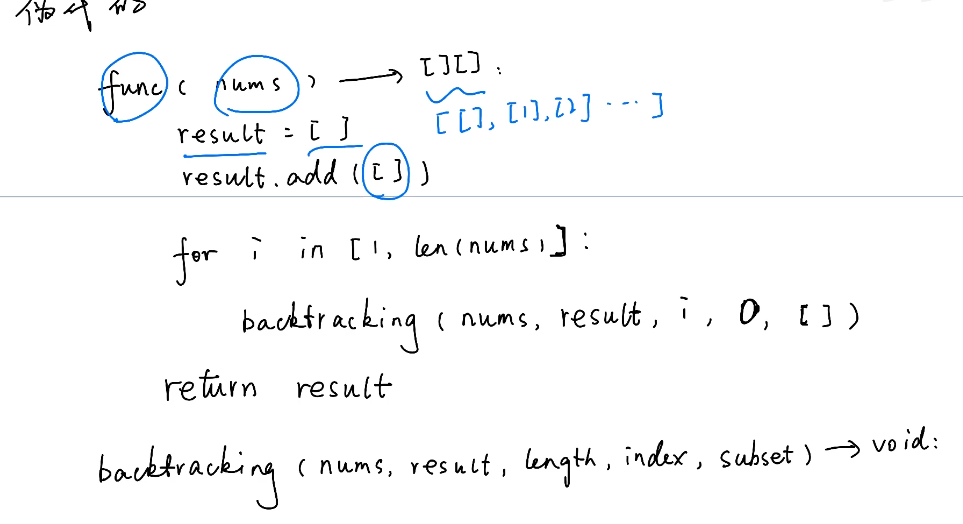 func ( nums ) → [][] :
[ [], [1], [2] ... ]
result = [ ]
result.add ( [ ] )
for i in [ 1, len(nums) ] :
backtracking ( nums, result, i, 0, [ ] )
return result
backtracking ( nums, result, length, index, subset ) → void: